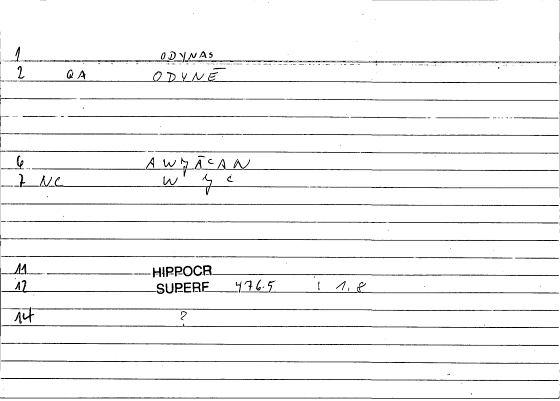 1 ODYNAS
2 QA ODYNĒ
6 AWYĀCAN
7 NC W Y C
11 HIPPOCR
12 SUPERF 476.5 : 1.8
14 ?